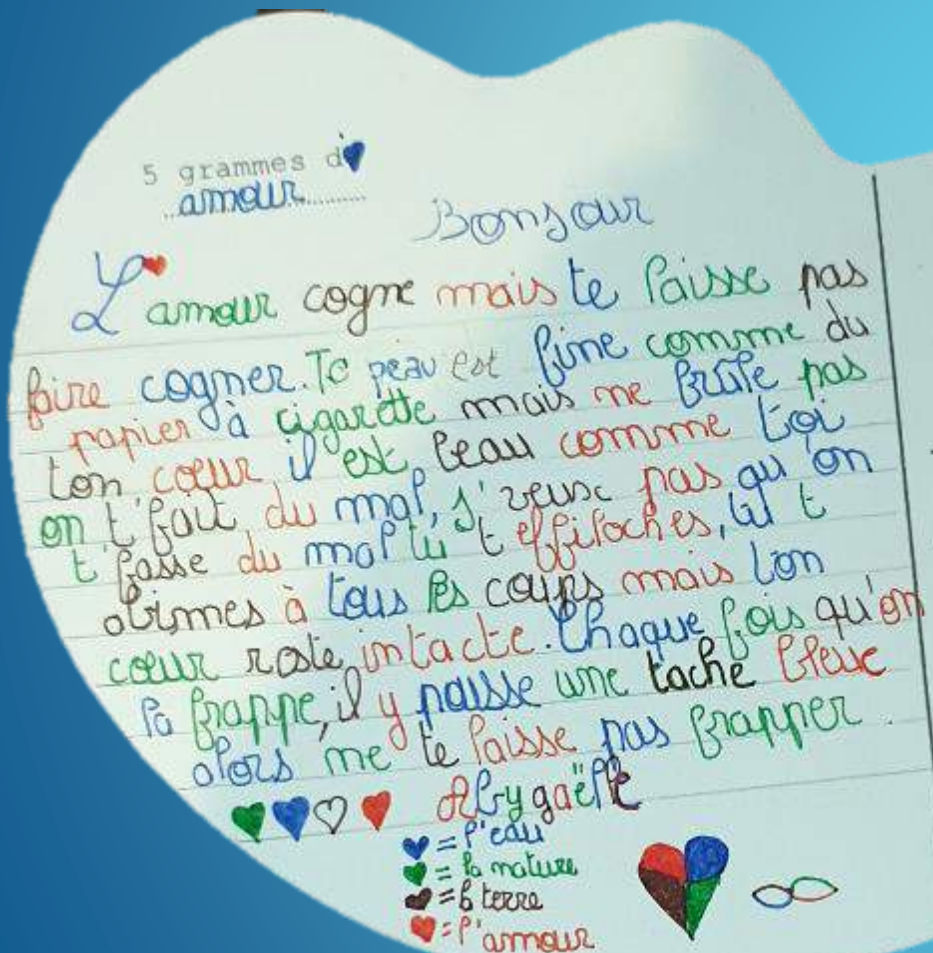 5 grammes d'
amour
Bonjour
L'amour cogne mais te laisse pas
faire cogner. Ta peau est fine comme du
papier à cigarette mais ne brûle pas
ton coeur, il est beau comme toi
on t'fait du mal, j'veux pas qu'on
t'fasse du mal tu t'effiloches, tu t
abimes à tous les coups mais ton
coeur reste intacte. Chaque fois qu'on
la frappe, il y naisse une tache bleue
alors ne te laisse pas frapper.
Abygaëlle
= l'eau
= la nature
= la terre
= l'amour